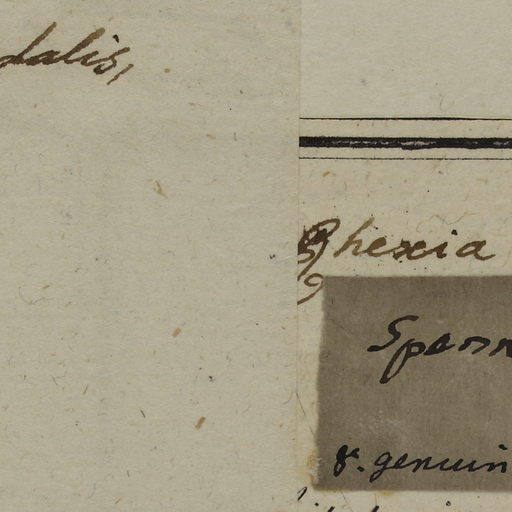 dalis,
Rhexia
Spenn
γ. genuin